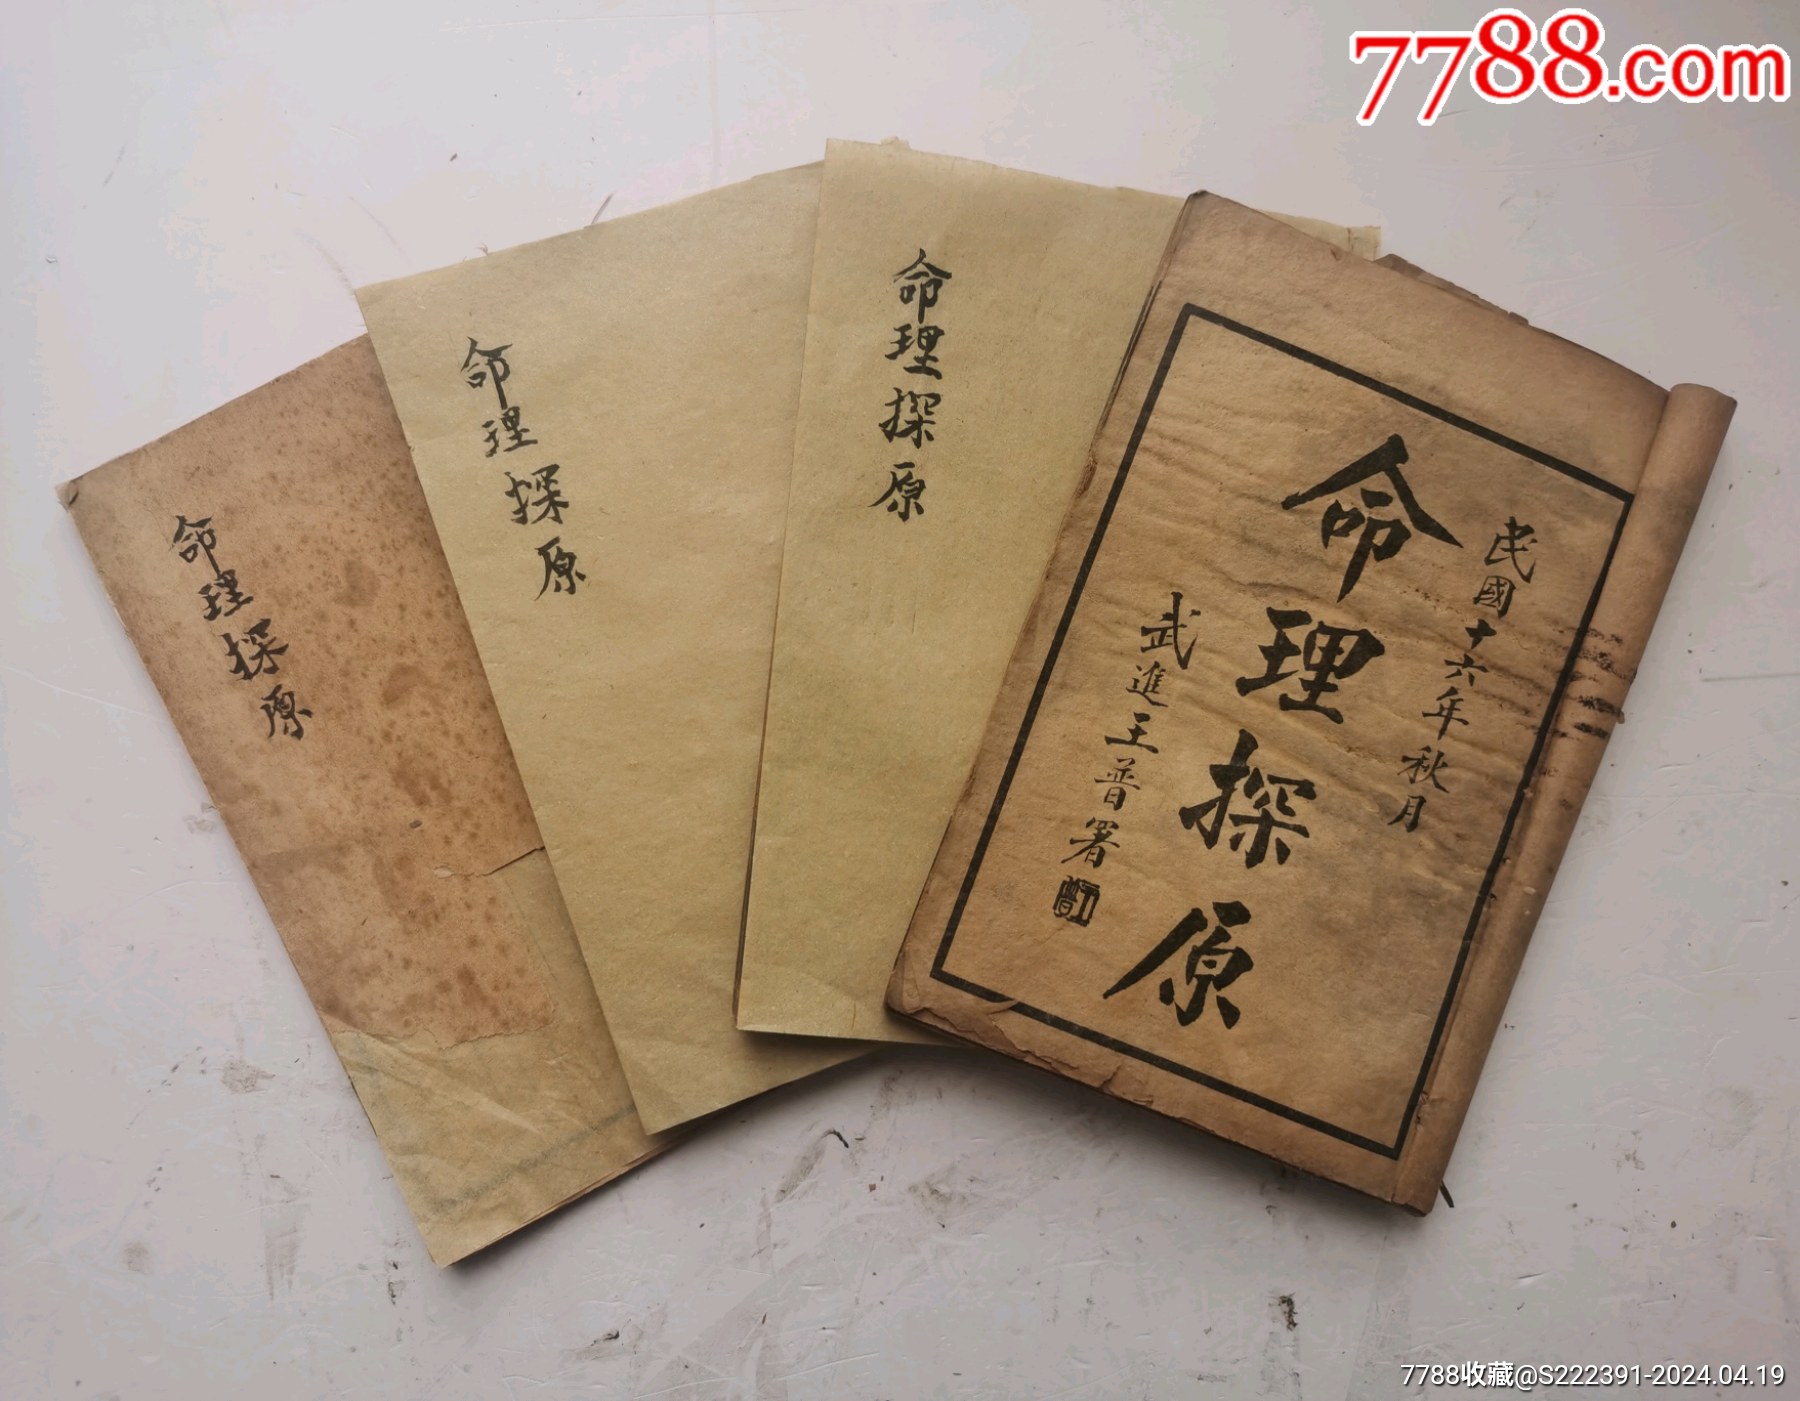 7788.com
民國十六年秋月
命理探原
武進王普署
命理探原
命理探原
命理探原
7788收藏@S222391-2024.04.19